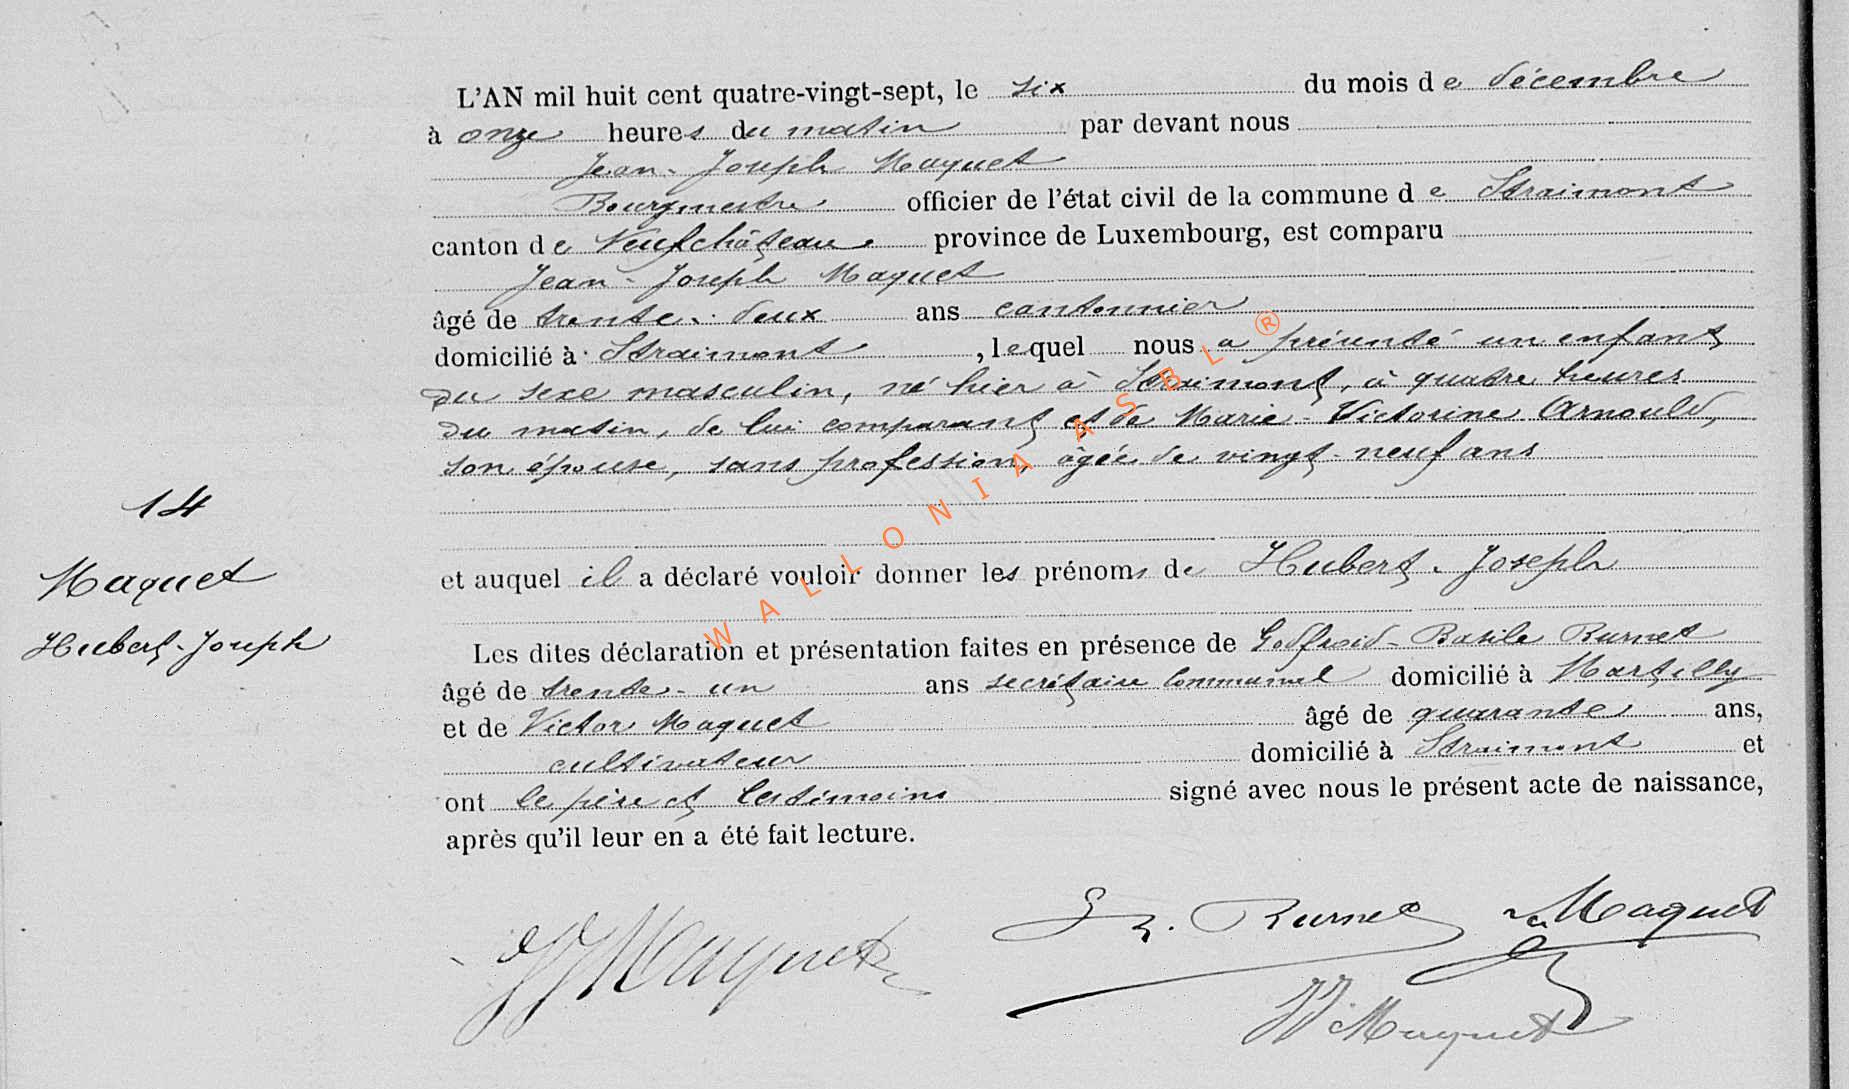 L'AN mil huit cent quatre-vingt-sept, le six du mois de décembre
à onze heures du matin par devant nous
Jean-Joseph Maquet
Bourgmestre officier de l'état civil de la commune de Straimont
canton de Neufchâteau province de Luxembourg, est comparu
Jean-Joseph Maquet
âgé de trente-deux ans cantonnier
domicilié à Straimont, lequel nous a présenté un enfant
du sexe masculin, né hier à Straimont, à quatre heures
du matin, de lui comparant et de Marie-Victorine Arnould,
son épouse, sans profession, âgée de vingt-neuf ans
14
Maquet
Hubert-Joseph
et auquel il a déclaré vouloir donner les prénoms de Hubert-Joseph
Les dites déclaration et présentation faites en présence de Godfroid-Basile Burnet
âgé de trente-un ans secrétaire communal domicilié à Martilly
et de Victor Maquet âgé de quarante ans,
cultivateur domicilié à Straimont et
ont le père et les témoins signé avec nous le présent acte de naissance,
après qu'il leur en a été fait lecture.
JJ Maquet Burnet Maquet
JJ Maquet
WALLONIA ASBL ®